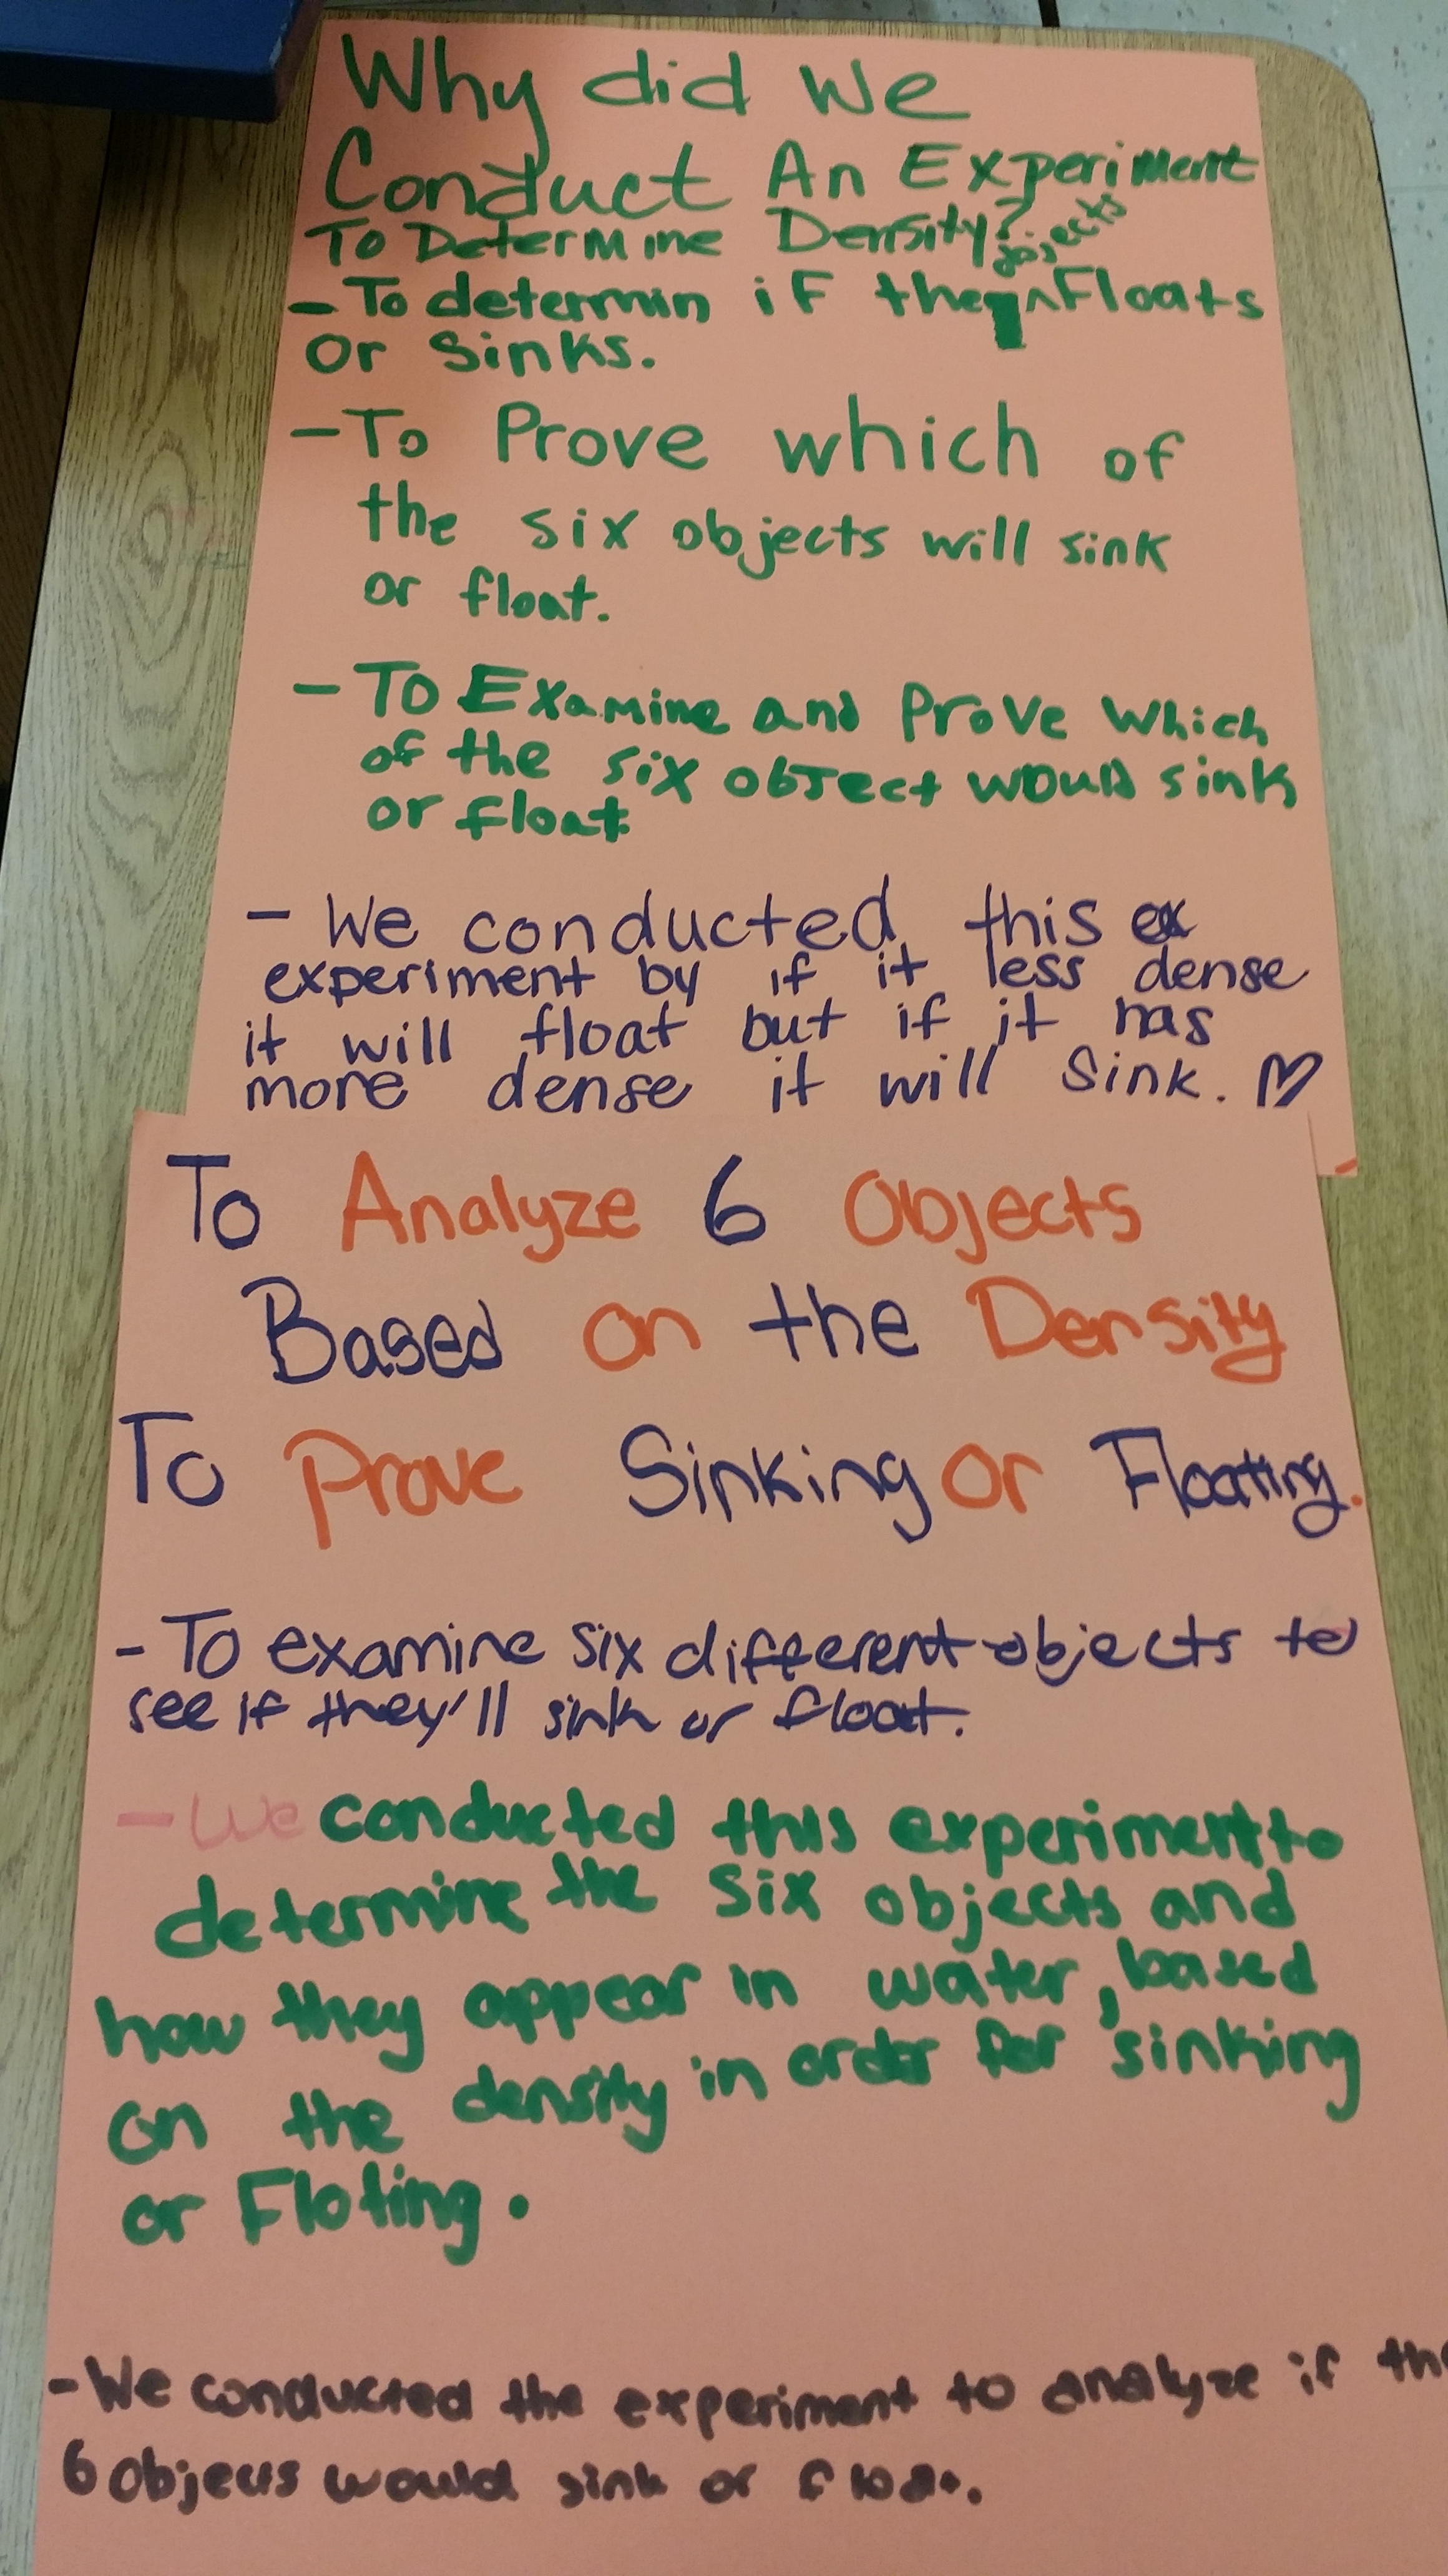 Why did We
Conduct An Experiment
To Determine Density?
objects
- To determin iF the ^ Floats
Or Sinks.
- To Prove which of
the six objects will sink
or float.
- To Examine and Prove Which
of the six object would sink
or float.
- We conducted this ex
experiment by if it less dense
it will float but if it has
more dense it will Sink. ♡
To Analyze 6 Objects
Based on the Density
To Prove Sinking Or Floating.
- To examine six different objects to
see if they'll sink or float.
- We conducted this experiment to
determine the six objects and
how they appear in water, based
on the density in order for sinking
or Floting.
- We conducted the experiment to analyze if the
6 objects would sink or float.